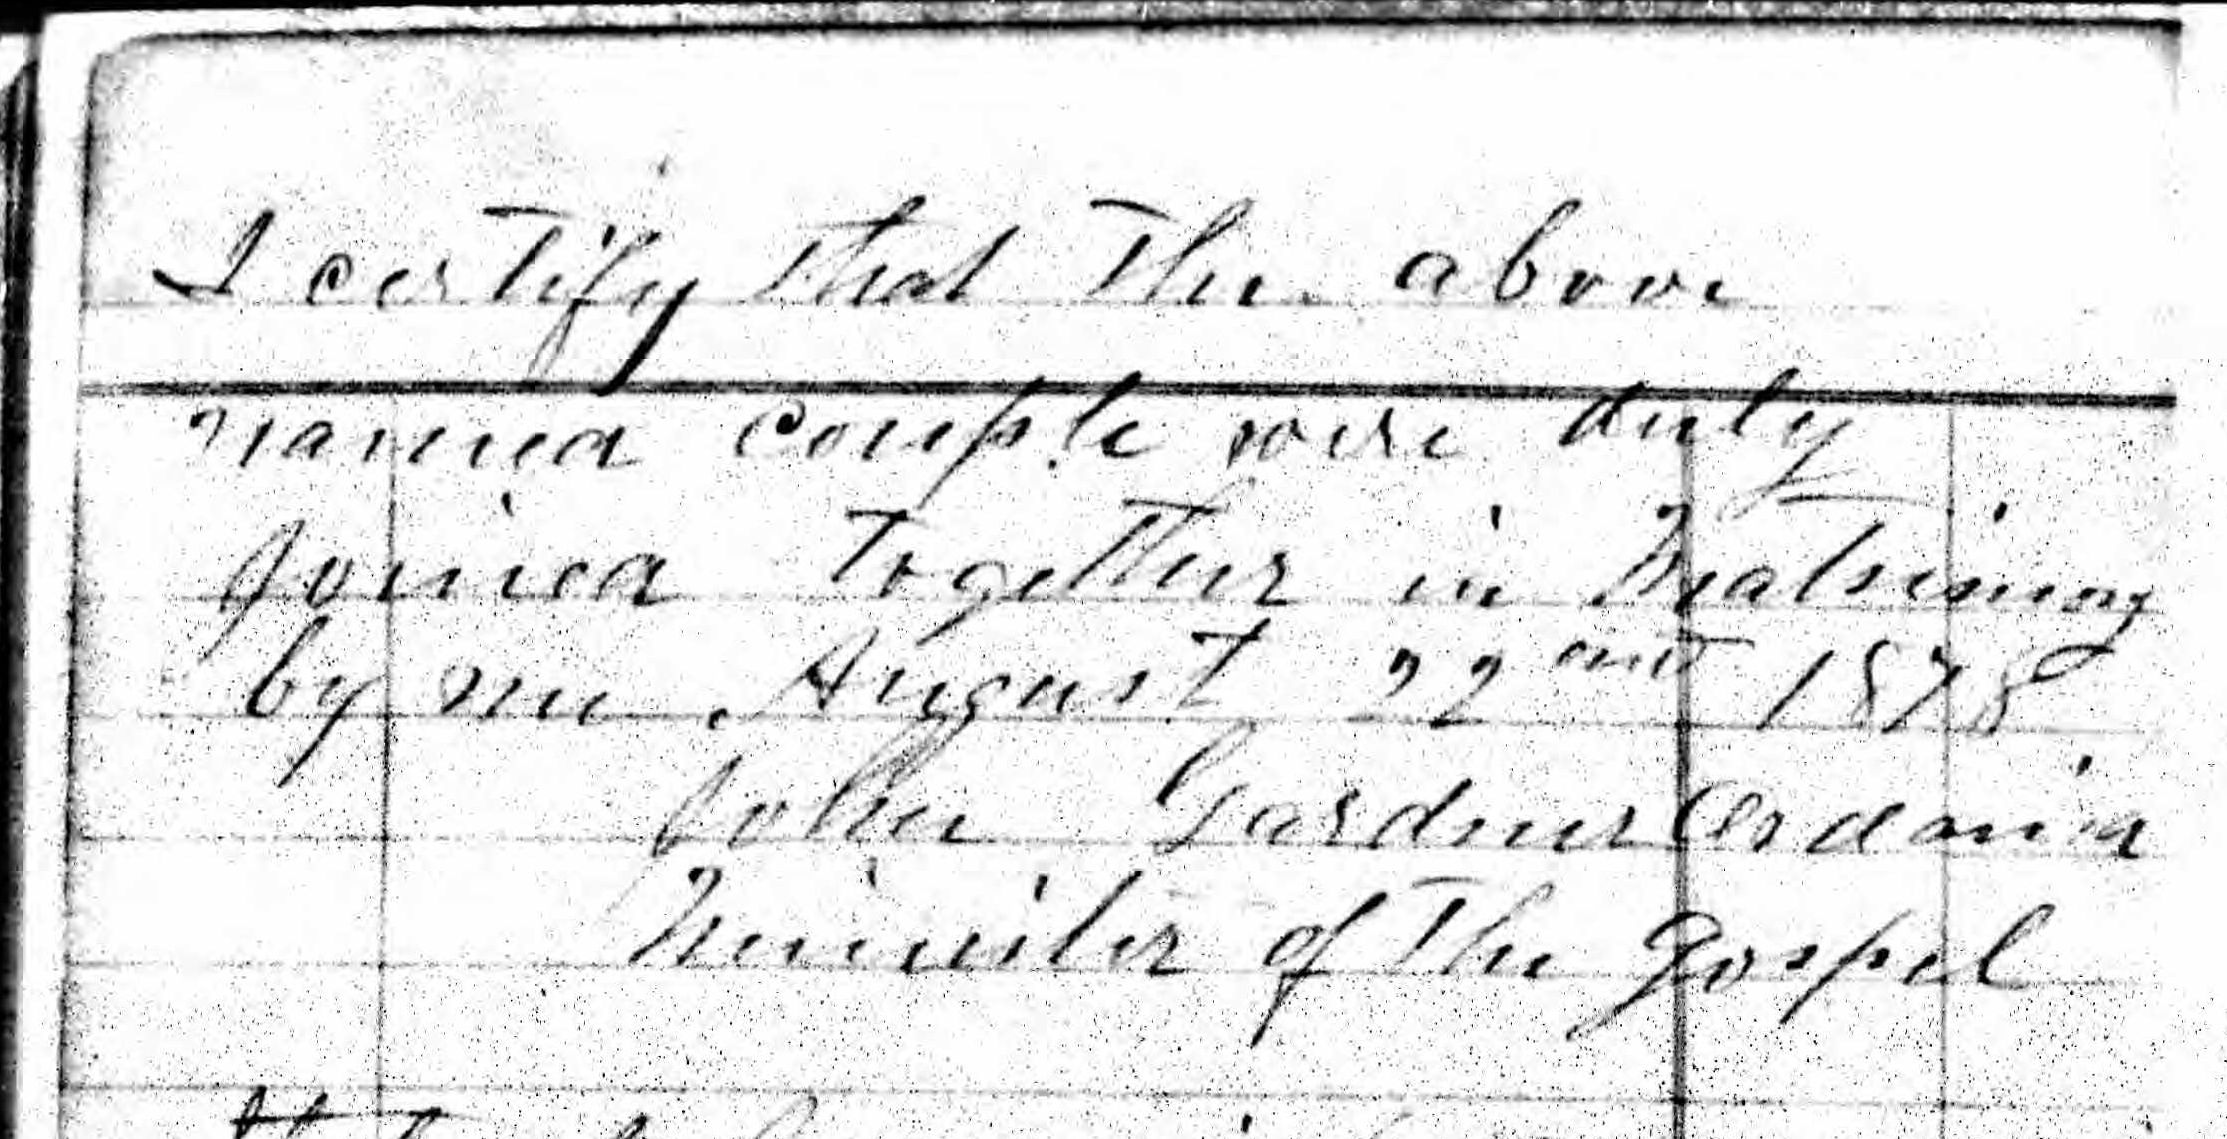 I certify that the above
named couple were duly
joined together in Matrimony
by me August 22ond 1878
John Gardner Ordained
Minister of the Gospel